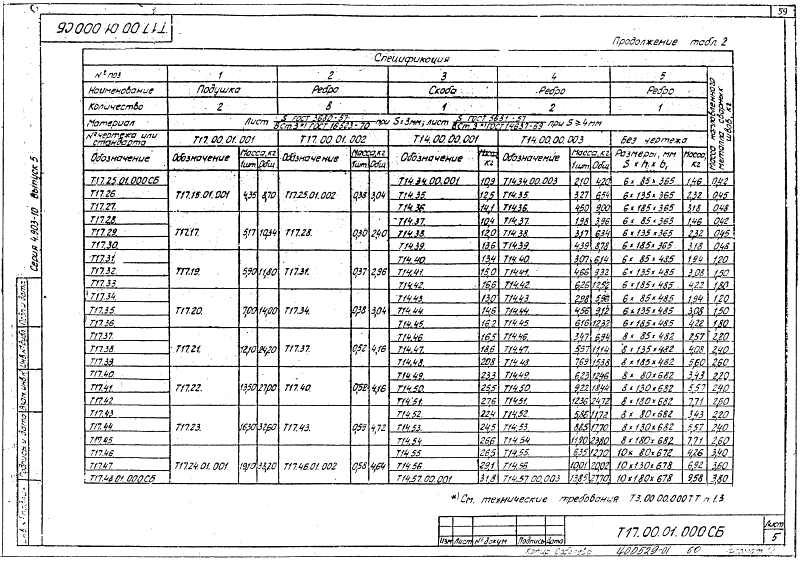 59
Т17.00.01.000СБ
Продолжение табл. 2
Спецификация
№ поз. 1 2 3 4 5 Масса наплавленного металла сварных швов, кг
Наименование Подушка Ребро Скоба Ребро Ребро
Количество 2 8 1 2 1
Материал Лист S ГОСТ 3680-57 / ВСт.3*) ГОСТ 16523-70 при S=3мм; лист S ГОСТ 3681-57 / ВСт.3*) ГОСТ 14637-69 при S≥4мм
№ чертежа или стандарта Т17.00.01.001 Т17.00.01.002 Т14.00.00.001 Т14.00.00.003 Без чертежа
Обозначение Обозначение Масса, кг 1шт. Общ. Обозначение Масса, кг 1шт. Общ. Обозначение Масса, кг Обозначение Масса, кг 1шт. Общ. Размеры, мм S × h × b, Масса, кг
Т17.25.01.000СБ Т14.34.00.001 10,9 Т14.34.00.003 2,10 4,20 6 × 85 × 365 1,46 0,42
Т17.26. Т17.18.01.001 4,35 8,70 Т17.25.01.002 0,38 3,04 Т14.35. 12,5 Т14.35. 3,27 6,54 6 × 135 × 365 2,32 0,45
Т17.27. Т14.36. 14,1 Т14.36. 4,50 9,00 6 × 185 × 365 3,18 0,48
Т17.28. Т14.37. 10,4 Т14.37. 1,98 3,96 6 × 85 × 365 1,46 0,42
Т17.29. Т17.17. 5,17 10,34 Т17.28. 0,30 2,40 Т14.38. 12,0 Т14.38. 3,17 6,34 6 × 135 × 365 2,32 0,45
Т17.30. Т14.39. 13,6 Т14.39. 4,39 8,78 6 × 185 × 365 3,18 0,48
Т17.31. Т14.40. 13,4 Т14.40. 3,07 6,14 6 × 85 × 485 1,94 1,20
Т17.32. Т17.19. 5,90 11,80 Т17.31. 0,37 2,96 Т14.41. 15,0 Т14.41. 4,66 9,32 6 × 135 × 485 3,08 1,50
Т17.33. Т14.42. 16,6 Т14.42. 6,26 12,52 6 × 185 × 485 4,22 1,80
Т17.34. Т14.43. 13,0 Т14.43. 2,98 5,96 6 × 85 × 485 1,94 1,20
Т17.35. Т17.20. 7,00 14,00 Т17.34. 0,38 3,04 Т14.44. 14,6 Т14.44. 4,56 9,12 6 × 135 × 485 3,08 1,50
Т17.36. Т14.45. 16,2 Т14.45. 6,16 12,32 6 × 185 × 485 4,22 1,80
Т17.37. Т14.46. 16,5 Т14.46. 3,47 6,94 8 × 85 × 482 2,57 2,20
Т17.38. Т17.21. 12,10 24,20 Т17.37. 0,52 4,16 Т14.47. 18,6 Т14.47. 5,57 11,14 8 × 135 × 482 4,08 2,40
Т17.39. Т14.48. 20,8 Т14.48. 7,69 15,38 8 × 185 × 482 5,60 2,60
Т17.40. Т14.49. 23,3 Т14.49. 6,23 12,46 8 × 80 × 682 3,43 2,20
Т17.41. Т17.22. 13,50 27,00 Т17.40. 0,52 4,16 Т14.50. 25,5 Т14.50. 9,22 18,44 8 × 130 × 682 5,57 2,40
Т17.42. Т14.51. 27,6 Т14.51. 12,36 24,72 8 × 180 × 682 7,71 2,60
Т17.43. Т14.52. 22,4 Т14.52. 5,86 11,72 8 × 80 × 682 3,43 2,20
Т17.44. Т17.23. 16,30 32,60 Т17.43. 0,59 4,72 Т14.53. 24,5 Т14.53. 8,85 17,70 8 × 130 × 682 5,57 2,40
Т17.45. Т14.54. 26,6 Т14.54. 11,90 23,80 8 × 180 × 682 7,71 2,60
Т17.46. Т14.55. 26,5 Т14.55. 6,35 12,70 10 × 80 × 678 4,26 3,40
Т17.47. Т17.24.01.001 19,10 38,20 Т17.46.01.002 0,58 4,64 Т14.56. 29,1 Т14.56. 10,01 20,02 10 × 130 × 678 6,92 3,60
Т17.48.01.000СБ Т14.57.00.001 31,8 Т14.57.00.003 13,85 27,70 10 × 180 × 678 9,58 3,80
*) См. технические требования Т3.00.00.000ТТ п.1.3.
Серия 4.903-10 Выпуск 5
Изм. Лист № докум. Подпись Дата
Т17.00.01.000СБ
Лист
5
400529-01 60